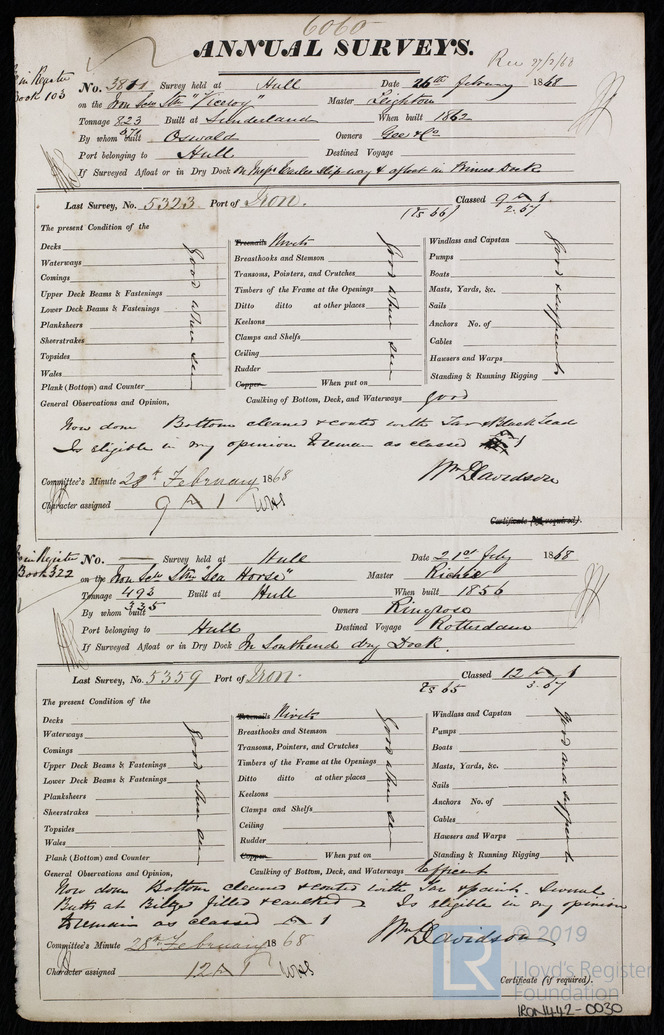 6060
ANNUAL SURVEYS.
Rec 27/2/68
in Register Book 103
No. 3811 Survey held at Hull Date 26th february 1868
on the Iron Scw Stm "Viceroy" Master Leighton
Tonnage 823 Built at Sunderland When built 1862
By whom built Oswald Owners Gee & Co
Port belonging to Hull Destined Voyage
If Surveyed Afloat or in Dry Dock On Messrs Earles Slip way & afloat in Princes Dock
Last Survey, No. 5323 Port of Iron. Classed 9 A 1.
(TS 66) 2.67
The present Condition of the
Decks
Waterways
Comings
Upper Deck Beams & Fastenings
Lower Deck Beams & Fastenings
Planksheers
Sheerstrakes
Topsides
Wales
Plank (Bottom) and Counter
good when seen
Treenails Rivets
Breasthooks and Stemson
Transoms, Pointers, and Crutches
Timbers of the Frame at the Openings
Ditto ditto at other places
Keelsons
Clamps and Shelfs
Ceiling
Rudder
Copper When put on
good when seen
Windlass and Capstan
Pumps
Boats
Masts, Yards, &c.
Sails
Anchors No. of
Cables
Hawsers and Warps
Standing & Running Rigging
good & sufficient
General Observations and Opinion, Caulking of Bottom, Deck, and Waterways good
Now done Bottom cleaned & coated with Tar & Black Lead
Is eligible in my opinion to remain as classed
Wm Davidson
Committee's Minute 28th February 1868
Character assigned 9 A 1
Certificate (if required).
in Register Book 322
No. Survey held at Hull Date 21st feby 1868
on the Iron Scw Stm "Sea Horse" Master Richie
Tonnage 493 Built at Hull When built 1856
335
By whom built Owners Ringrose
Port belonging to Hull Destined Voyage Rotterdam
If Surveyed Afloat or in Dry Dock In Southend dry Dock.
Last Survey, No. 5359 Port of Iron. Classed 12 A 1
TS 65 3.67
The present Condition of the
Decks
Waterways
Comings
Upper Deck Beams & Fastenings
Lower Deck Beams & Fastenings
Planksheers
Sheerstrakes
Topsides
Wales
Plank (Bottom) and Counter
good when seen
Treenails Rivets
Breasthooks and Stemson
Transoms, Pointers, and Crutches
Timbers of the Frame at the Openings
Ditto ditto at other places
Keelsons
Clamps and Shelfs
Ceiling
Rudder
Copper When put on
good when seen
Windlass and Capstan
Pumps
Boats
Masts, Yards, &c.
Sails
Anchors No. of
Cables
Hawsers and Warps
Standing & Running Rigging
good and sufficient
General Observations and Opinion, Caulking of Bottom, Deck, and Waterways Efficient
Now done Bottom cleaned & coated with Tar & paint. Several
Butts at Bilge filled & caulked Is eligible in my opinion
to remain as classed A 1
Wm Davidson
Committee's Minute 28th February 1868
Character assigned 12 A 1
Certificate (if required).
LR
© 2019
Lloyd's Register
Foundation
IRON442-0030